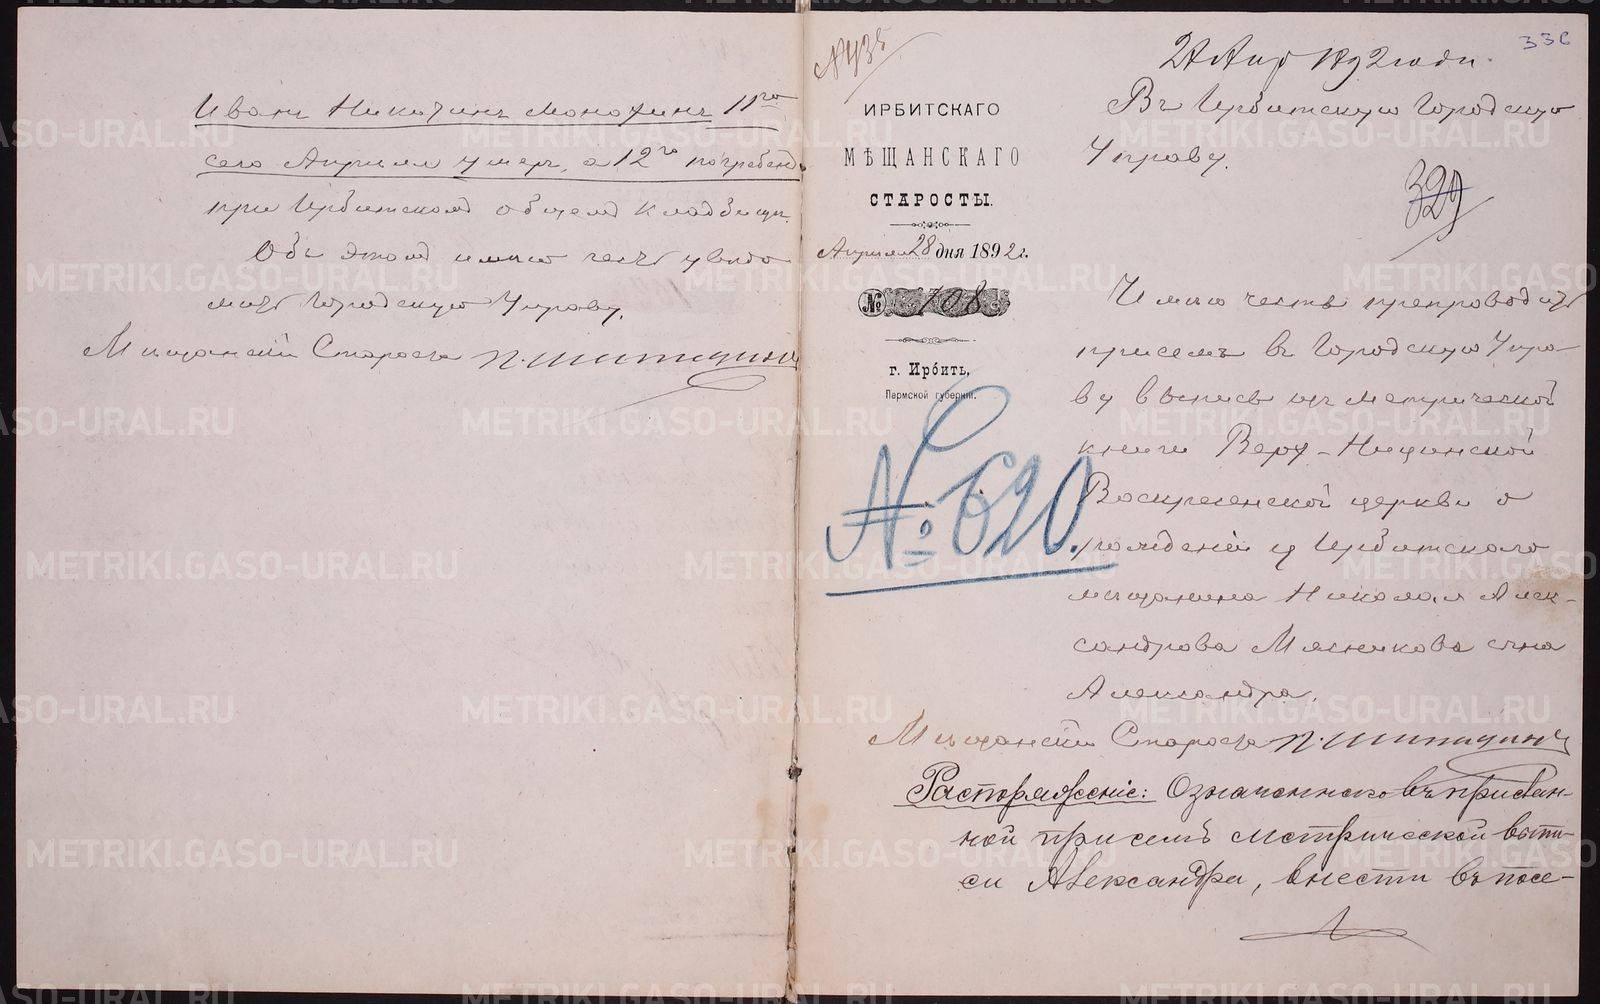 Иванъ Никитинъ Мо[...] 11го
сего Апреля умеръ, а 12го погребенъ
при Ирбитскомъ общемъ кладбищѣ.
Объ этомъ имѣю честь увѣдо
мить Городскую Управу.
Мѣщанскій Староста
№ 435
ИРБИТСКАГО
МѢЩАНСКАГО
СТАРОСТЫ.
Апреля 28 дня 1892 г.
№ 108
г. Ирбитъ,
Пермской губерніи.
№ 620.
336
Апр 1892 года.
Въ Ирбитскую Городскую
Управу.
329
Имѣю честь препроводить
присемъ въ Городскую Упра-
ву выпись изъ метрической
книги Верх-Ницинской
Воскресенской церкви о
рожденіи у Ирбитскаго
мѣщанина Николая Алек-
сандрова Мясникова сына
Александра.
Мѣщанскій Староста
Распоряженіе: Означеннаго въ прислан-
ной присемъ метрической выпи-
си Александра, внести въ посе-
METRIKI.GASO-URAL.RU